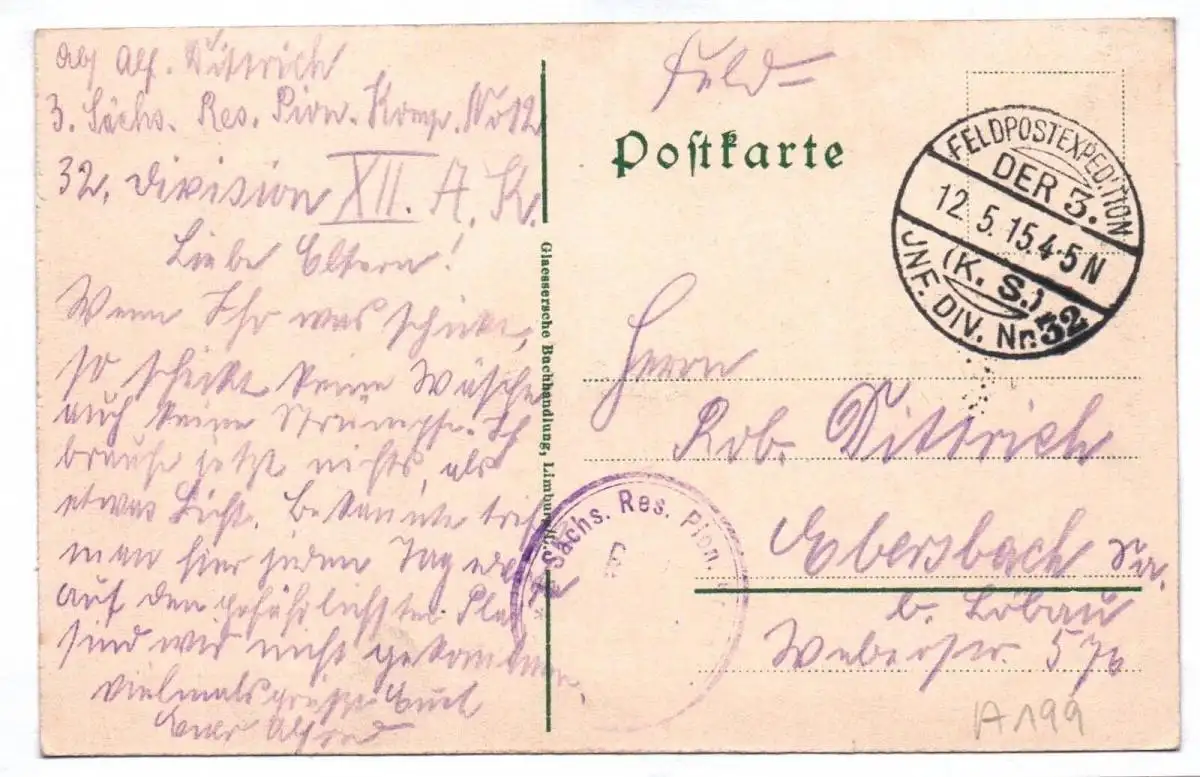 Abs. Alf. Dittrich
3. Sächs. Res. Pion. Komp. No 12
32. Division XII. A. K.
Liebe Eltern!
Wenn Ihr was schickt,
so schickt keine Wäsche
auch keine Strümpfe. Ich
brauche jetzt nichts, als
etwas Licht. Bekannte trifft
man hier jeden Tag
auf den gefährlichsten
sind wir nicht gekommen.
Vielmals grüßt Euch
Euer Alfred
Glaessersche Buchhandlung, Limburg
Feld=
Postkarte
FELDPOSTEXPEDITION
DER 3.
12.5.15.4-5N
(K. S.)
JNF. DIV. Nr. 32
Herrn
Rob. Dittrich
Ebersbach Sa.
b. Löbau
Weberstr.
Sächs. Res. Pion.
A199